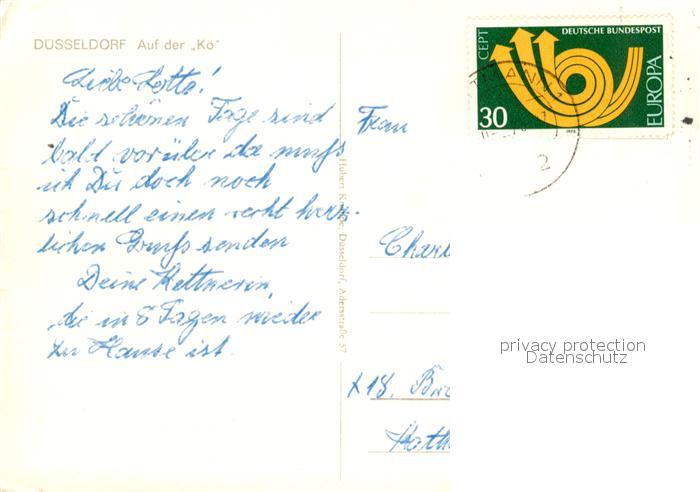 DÜSSELDORF Auf der „Kö"
Liebe Lotte!
Die schönen Tage sind
bald vorüber da muß
ich Dir doch noch
schnell einen recht herz-
lichen Gruß senden
Deine Kettnerin
die in 8 Tagen wieder
zu Hause ist.
Hubert Düsseldorf, Adersstraße 57
CEPT
DEUTSCHE BUNDESPOST
EUROPA
30
1973
2
Frau
Charl
privacy protection
Datenschutz